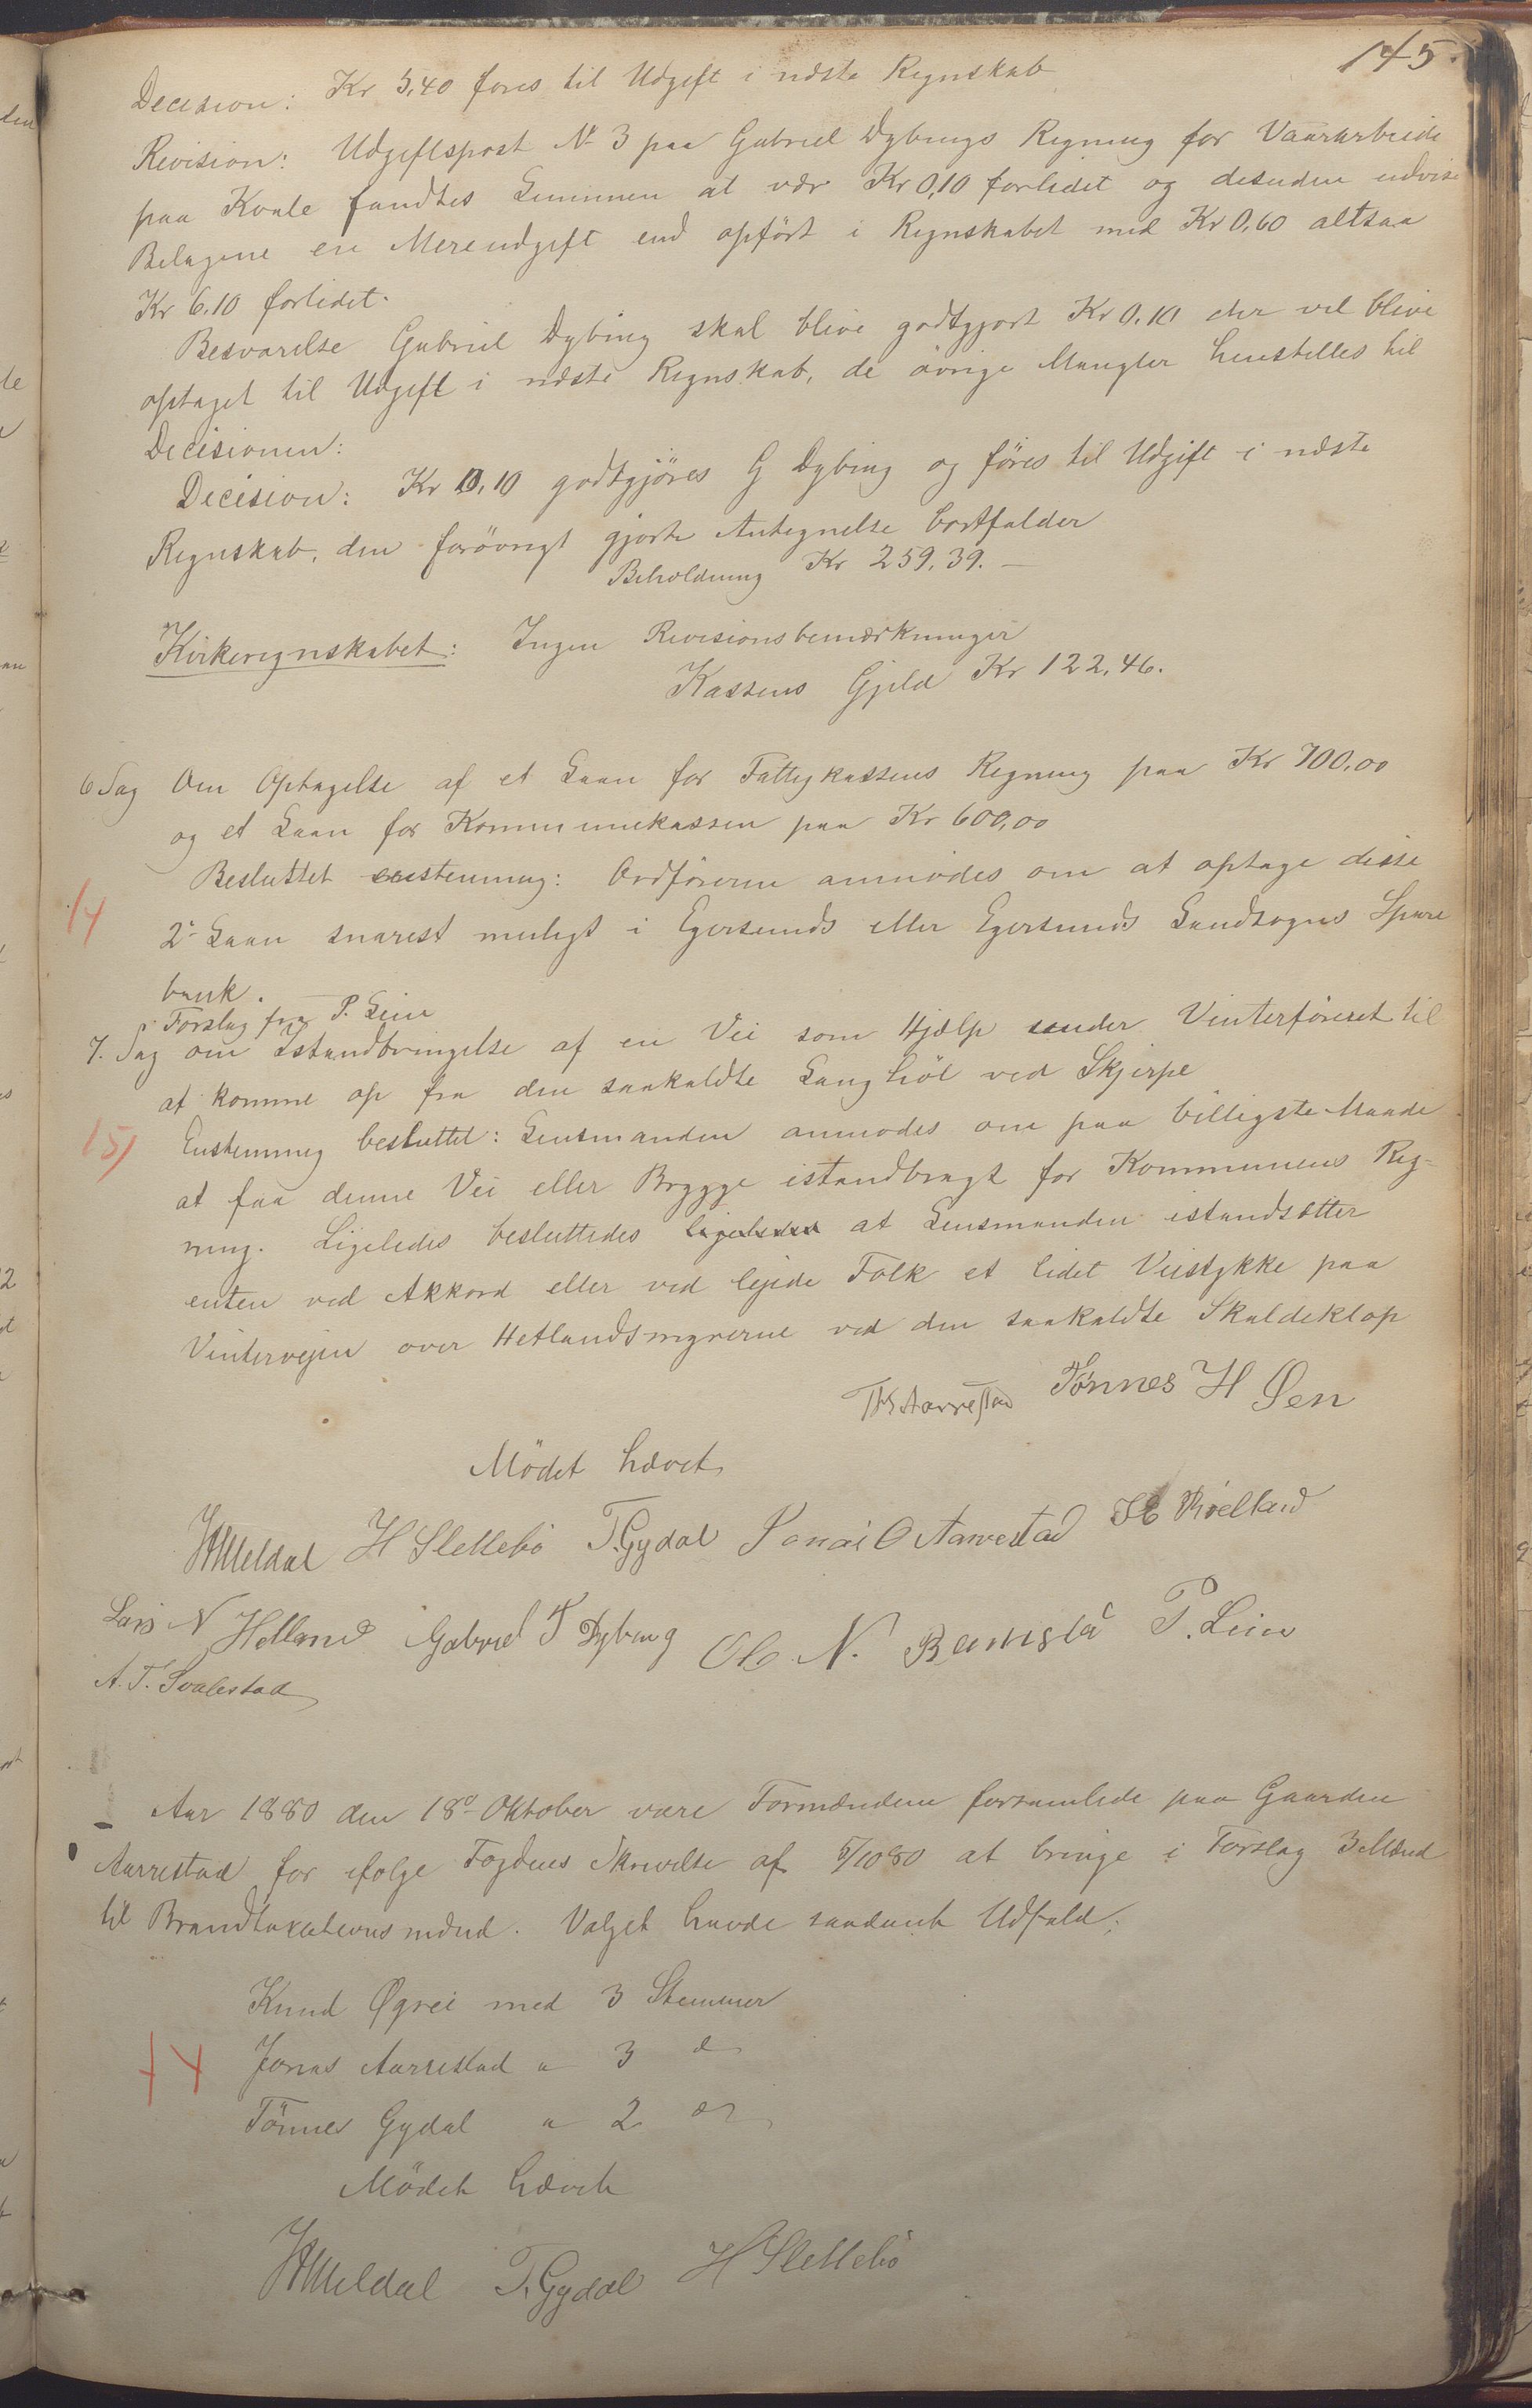 145.
Decision: Kr 5,40 føres til Udgift i næste Regnskab
Revision: Udgiftspost No 3 paa Gabriel Dybings Regning for Vaararbeide
paa Kvale fandtes Summen at vær Kr 0,10 forlidet og desuden udvise
Belagene en Mereudgift end opført i Regnskabet med Kr 0,60 altsaa
Kr 6.10 forlidet.
Besvarelse Gabriel Dybing skal blive godtgjort Kr 0,10 der vil blive
optaget til Udgift i næste Regnskab, de øvrige Mangler henstilles til
Decisionen:
Decision: Kr 0,10 godtgjöres G Dybing og föres til Udgift i næste
Regnskab, den forövrigt gjorte Antegnelse bortfalder
Beholdning Kr 259,39.—
Kirkeregnskabet: Ingen Revisionsbemærkninger
Kassens Gjeld Kr 122,46.
6 Sag Om Optagelse af et Laan for Fattigkassens Regning paa Kr 700,00
og et Laan for Kommunekassen paa Kr 600,00
Besluttet enstemmig: Ordföreren anmodes om at optage disse
14
2de Laan snarest muligt i Egersunds eller Egersunds Landsogns Spare
bank.
Forslag fra P. Leim
7. Sag om Istandbringelse af en Vei som Hjælp under Vinterföreret til
at komme op fra den saakaldte Langhöl ved Skjerpe
15/ Enstemmig besluttet: Lensmanden anmodes om paa billigste Maade
at faa denne Vei eller Brygge istandbragt for Kommunens Reg-
ning. Ligeledes besluttedes ligeledes at Lensmanden istandsætter
enten ved Akkord eller ved lejede Folk et lidet Veistykke paa
Vintervejen over Hetlandsmyrerne ved den saakaldte Skaldeklop
Aarrestad Tönnes H Øen
Mödet hævet
Meldal H Slettebö T. Gydal Jonas O Aarrestad
Lars N Helland Gabriel T Dybing Ole N. Ramslå P. Leim
A. T. Svalestad
Aar 1880 den 18de Oktober vare Formændene forsamlede paa Gaarden
Aarrestad for ifölge Fogdens Skrivelse af 5/10 80 at bringe i Forslag 3 Mænd
til Brandtaxationsmænd. Valget havde saadant Udfald:
Knud Øgrei med 3 Stemmer
Jonas Aarrestad " 3 do
Tönnes Gydal " 2 do
Mödet hævet
Meldal T. Gydal H Slettebö